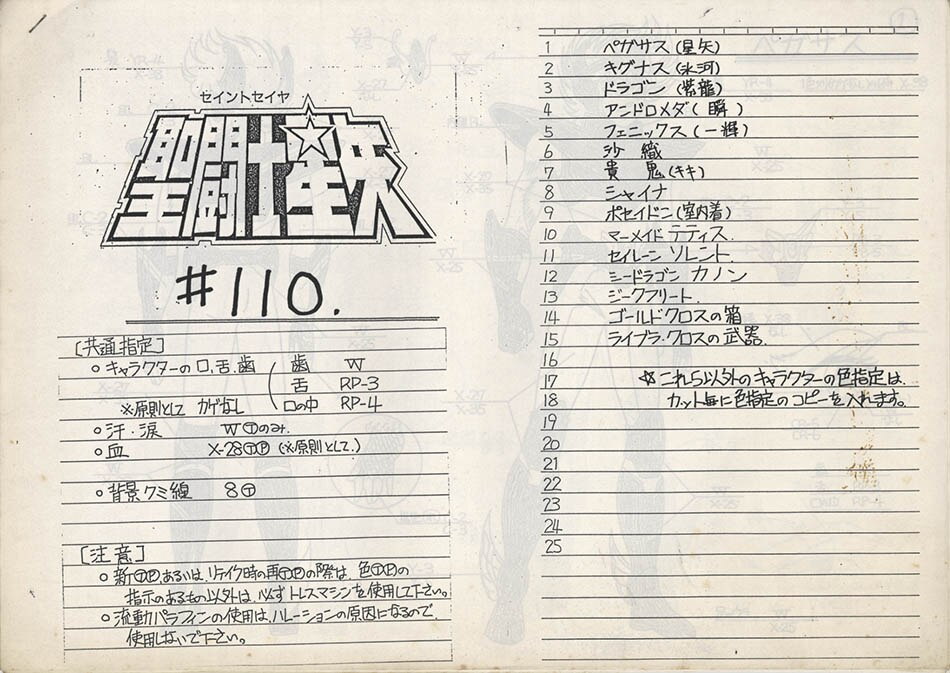 セイントセイヤ
聖闘士星矢
#110.
[共通指定]
○キャラクターの口、舌、歯 ( 歯 W
舌 RP-3
※原則として カゲなし 口の中 RP-4
○汗・涙 WⓉのみ.
○血 X-28ⓉⓅ (※原則として.)
○背景クミ線 8Ⓣ
[注意]
○新ⓉⓅ、あるいは、リテイク時の再ⓉⓅの際は、色ⓉⓅの
指示のあるもの以外は、必ずトレスマシンを使用して下さい。
○流動パラフィンの使用は、ハレーションの原因になるので、
使用しないで下さい。
1 ペガサス (星矢)
2 キグナス (氷河)
3 ドラゴン (紫龍)
4 アンドロメダ (瞬)
5 フェニックス (一輝)
6 沙織
7 貴鬼 (キキ)
8 シャイナ
9 ポセイドン (室内着)
10 マーメイド テティス.
11 セイレーン ソレント.
12 シードラゴン カノン
13 ジークフリート.
14 ゴールドクロスの箱
15 ライブラ・クロスの武器.
16
17 ☆これら以外のキャラクターの色指定は、
18 カット毎に色指定のコピーを入れます。
19
20
21
22
23
24
25